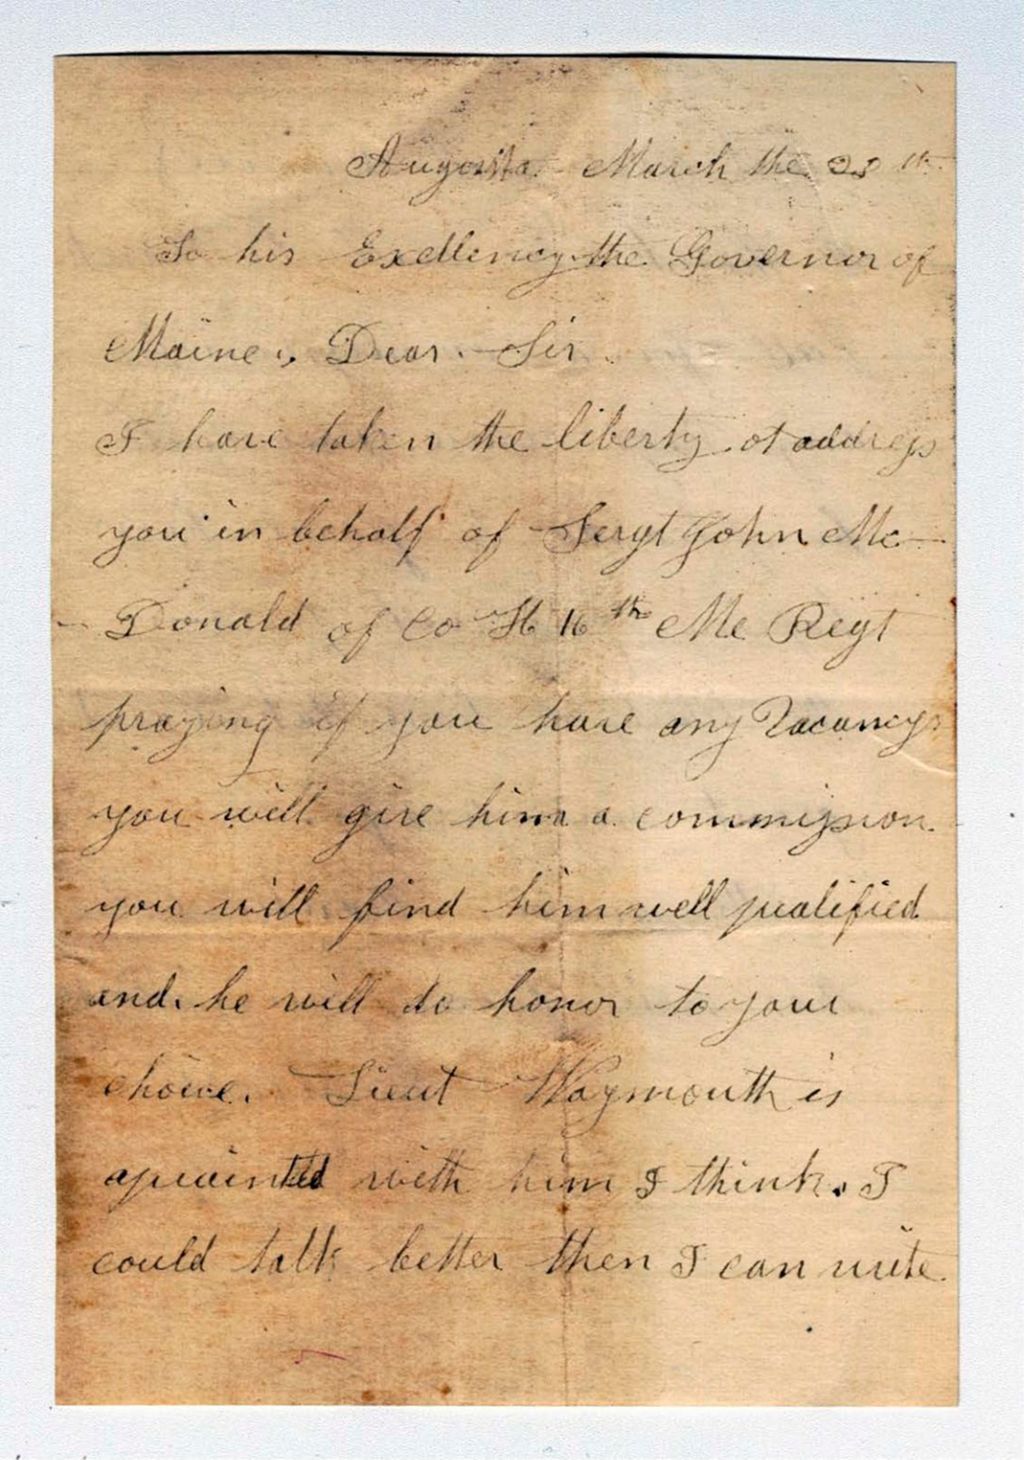 Augusta March the 28th
To his Exellency the Governor of
Maine., Dear Sir
I have taken the liberty of address
you in behalf of Sergt John Mc
Donald of Co H 16th Me Regt
praying if you have any Vacancys
you will give him a commission
you will find him well qualified
and he will do honor to your
choice. Lieut Waymouth is
apointed with him I think. I
could talk better then I can write